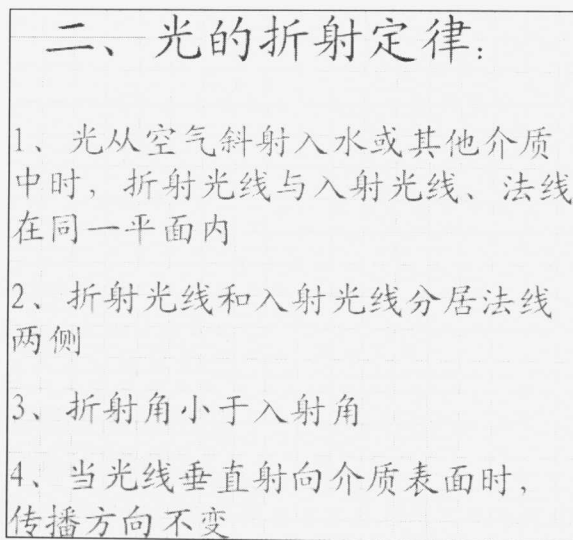 二、光的折射定律：
1、光从空气斜射入水或其他介质
中时，折射光线与入射光线、法线
在同一平面内
2、折射光线和入射光线分居法线
两侧
3、折射角小于入射角
4、当光线垂直射向介质表面时，
传播方向不变